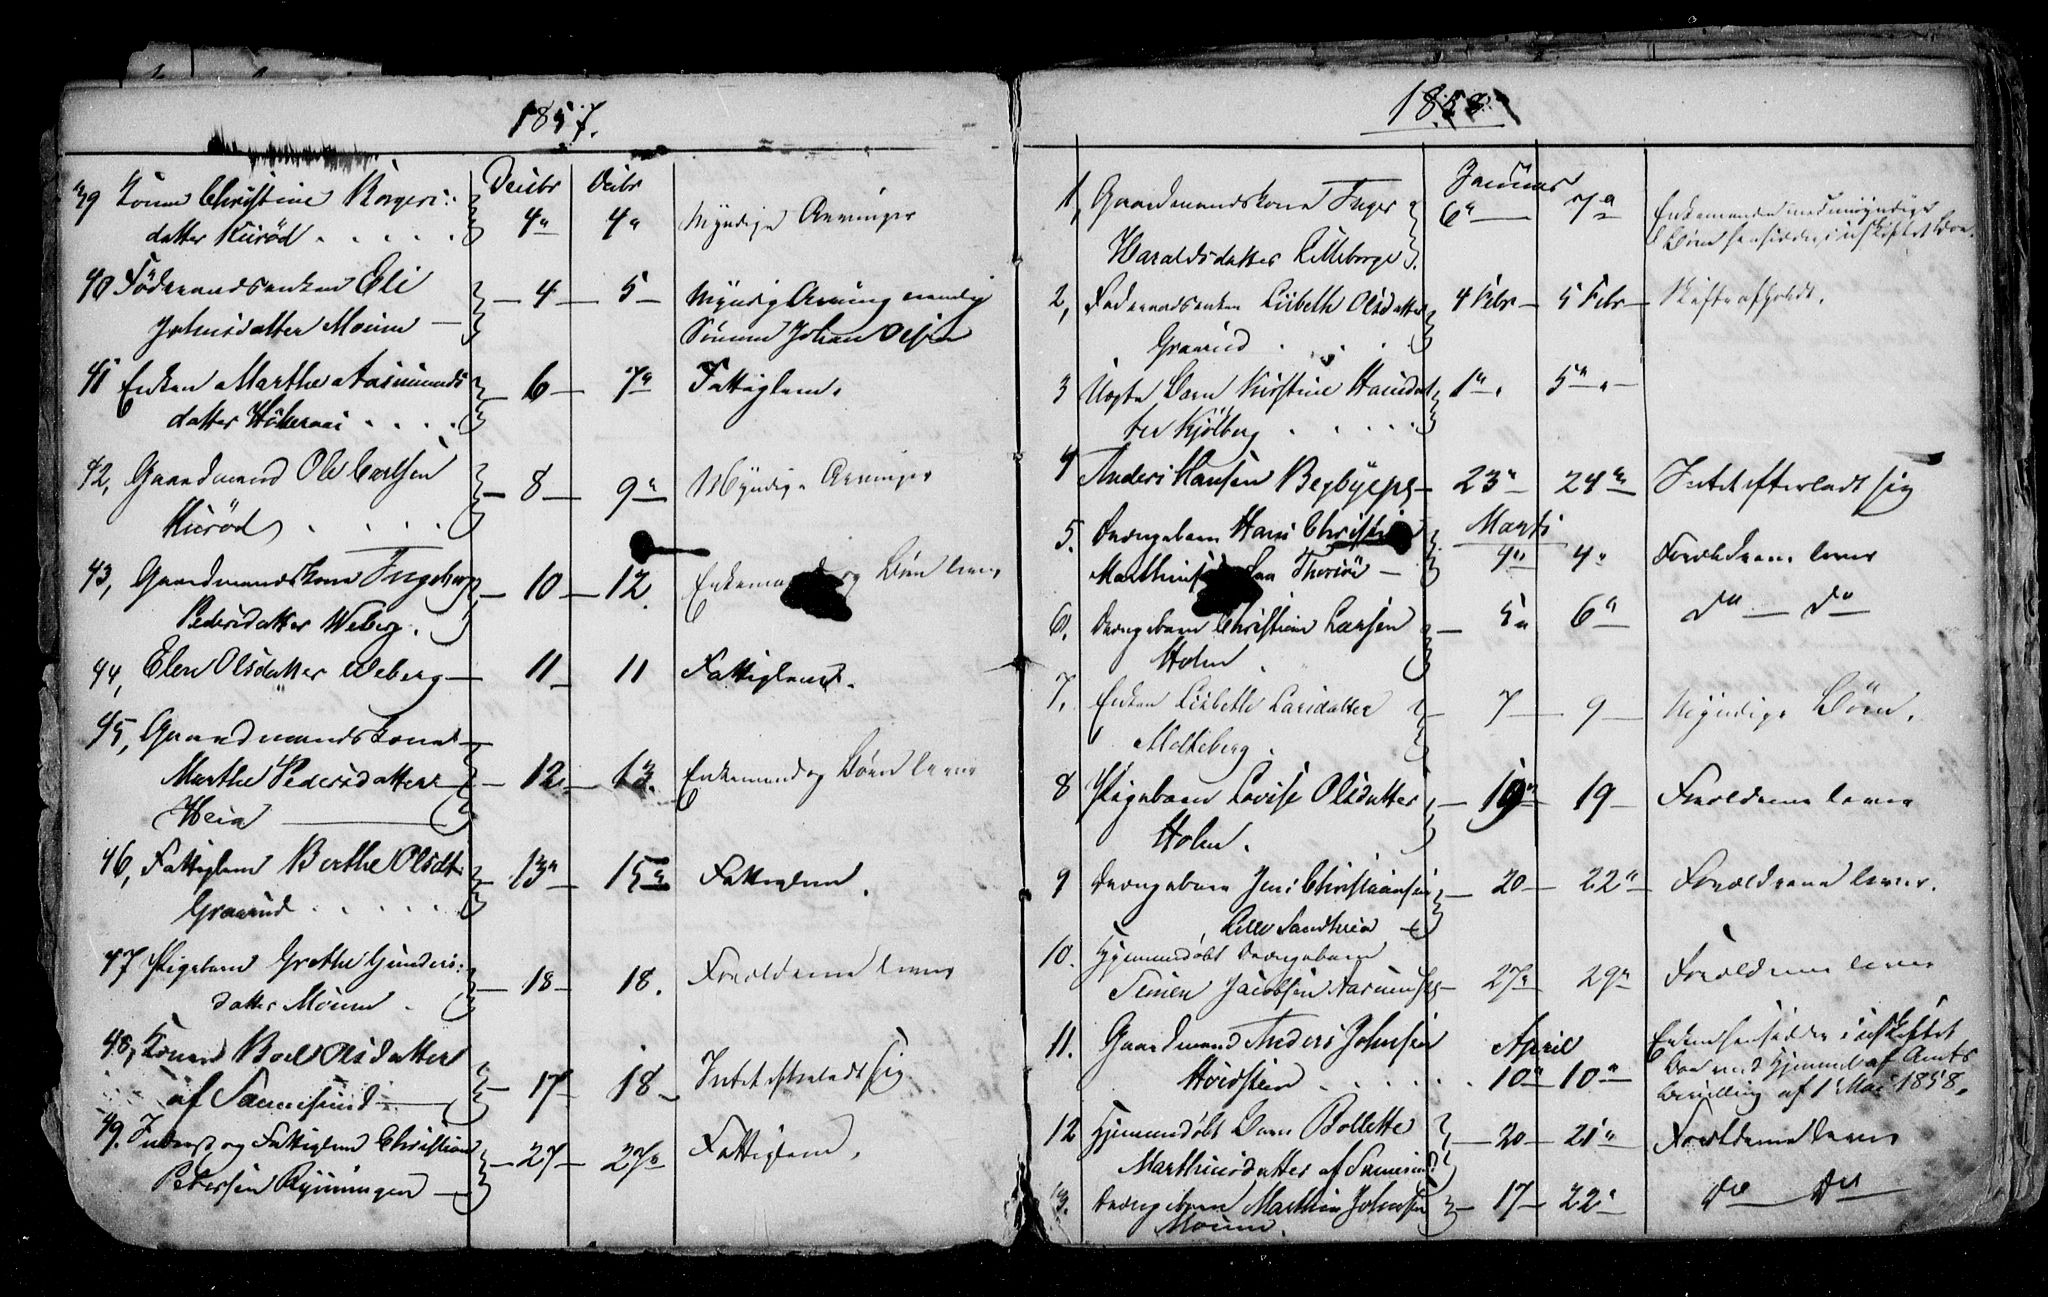 1857.
Decbr Decbr
39 Konen Christine Borgers:
datter Kurød . . . . . 4" 4" Myndige Arvinger
40 Føderaadsenken Eli
Johnsdatter Moum — 4 — 5 — Myndig Arving nemlig
Sønnen Johan Olsen
41 Enken Marthe Aasmunds
datter . . . . 6 — 7" Fattiglem.
42, Gaardmand Ole Carlsen
Kurød . . . . — 8 — 9" Myndige Arvinger
43, Gaardmandskone Ingeborg
Pedersdatter Weberg. — 10 — 12. Enkemand og Børn lever
44, Elen Olsdatter Weberg — 11 — 11 Fattiglem.
45, Gaardmandskone
Marthe Pedersdatter
Heia — 12 — 13. Enkemand og Børn lever
46, Fattiglem Berthe Olsdt:
Graarud . . . . . — 13" — 15" Fattiglem.
47 Pigebarn Grethe Gunders:
datter Moum . — 18 — 18. Forældrene lever
48, Konen Boel Olsdatter
af Sannesund — 17 — 18 — Intet efterladt sig
49. Inderst og Fattiglem Christian
Petersen Rynningen — 27 — 27" Fattiglem.
1858
Januar
1, Gaardmandskone Inger
Haraldsdatter Lilleborge. 6" — 7" Enkemanden med umyndige
Børn hensidder i uskiftet Boe.
2, Føderaadsenken Lisbeth Olsdatter
Graarud . . . 4 Febr — 5 Febr — Skifte afholdt.
3 Uægte Barn Kirstine Hansdat
ter Kjølberg . . . . . 1" . 5" . —
4 Anders Hansen Begbyeje — 23" — 24" Intet efterladt sig
Marts
5. Drengebarn Hans Christian
Marthinsen Thorsø — 4" 4" Forældrene lever
6. Drengebarn Christian Larsen
Holm . — 5" 6" do — do
7. Enken Lisbeth Larsdatter
Molteberg . — 7 — 9 — Myndige Børn.
8 Pigebarn Lovise Olsdatter
Holm. — 19" — 19 — Forældrene lever
9 Drengebarn Jens Christiansen
Sandheia — 20 — 22" — Forældrene lever.
10. Hjemmedøbt Drengebarn
Simen Jacobsen — 27" — 29" Forældrene lever
11. Gaardmand Anders Johnsen
April
. . . . . . 10" — 10" Enken hensidder i uskiftet
Boe med Hjemmel af Amts
Bevilling af 1 Mai 1858.
12 Hjemmedøbt Barn Bollette
Marthinsdatter af Sannesund — 20 — 21" Forældrene lever
13. Drengebarn Marthin Johnsen
Moum. — 17 — 22" do — do —